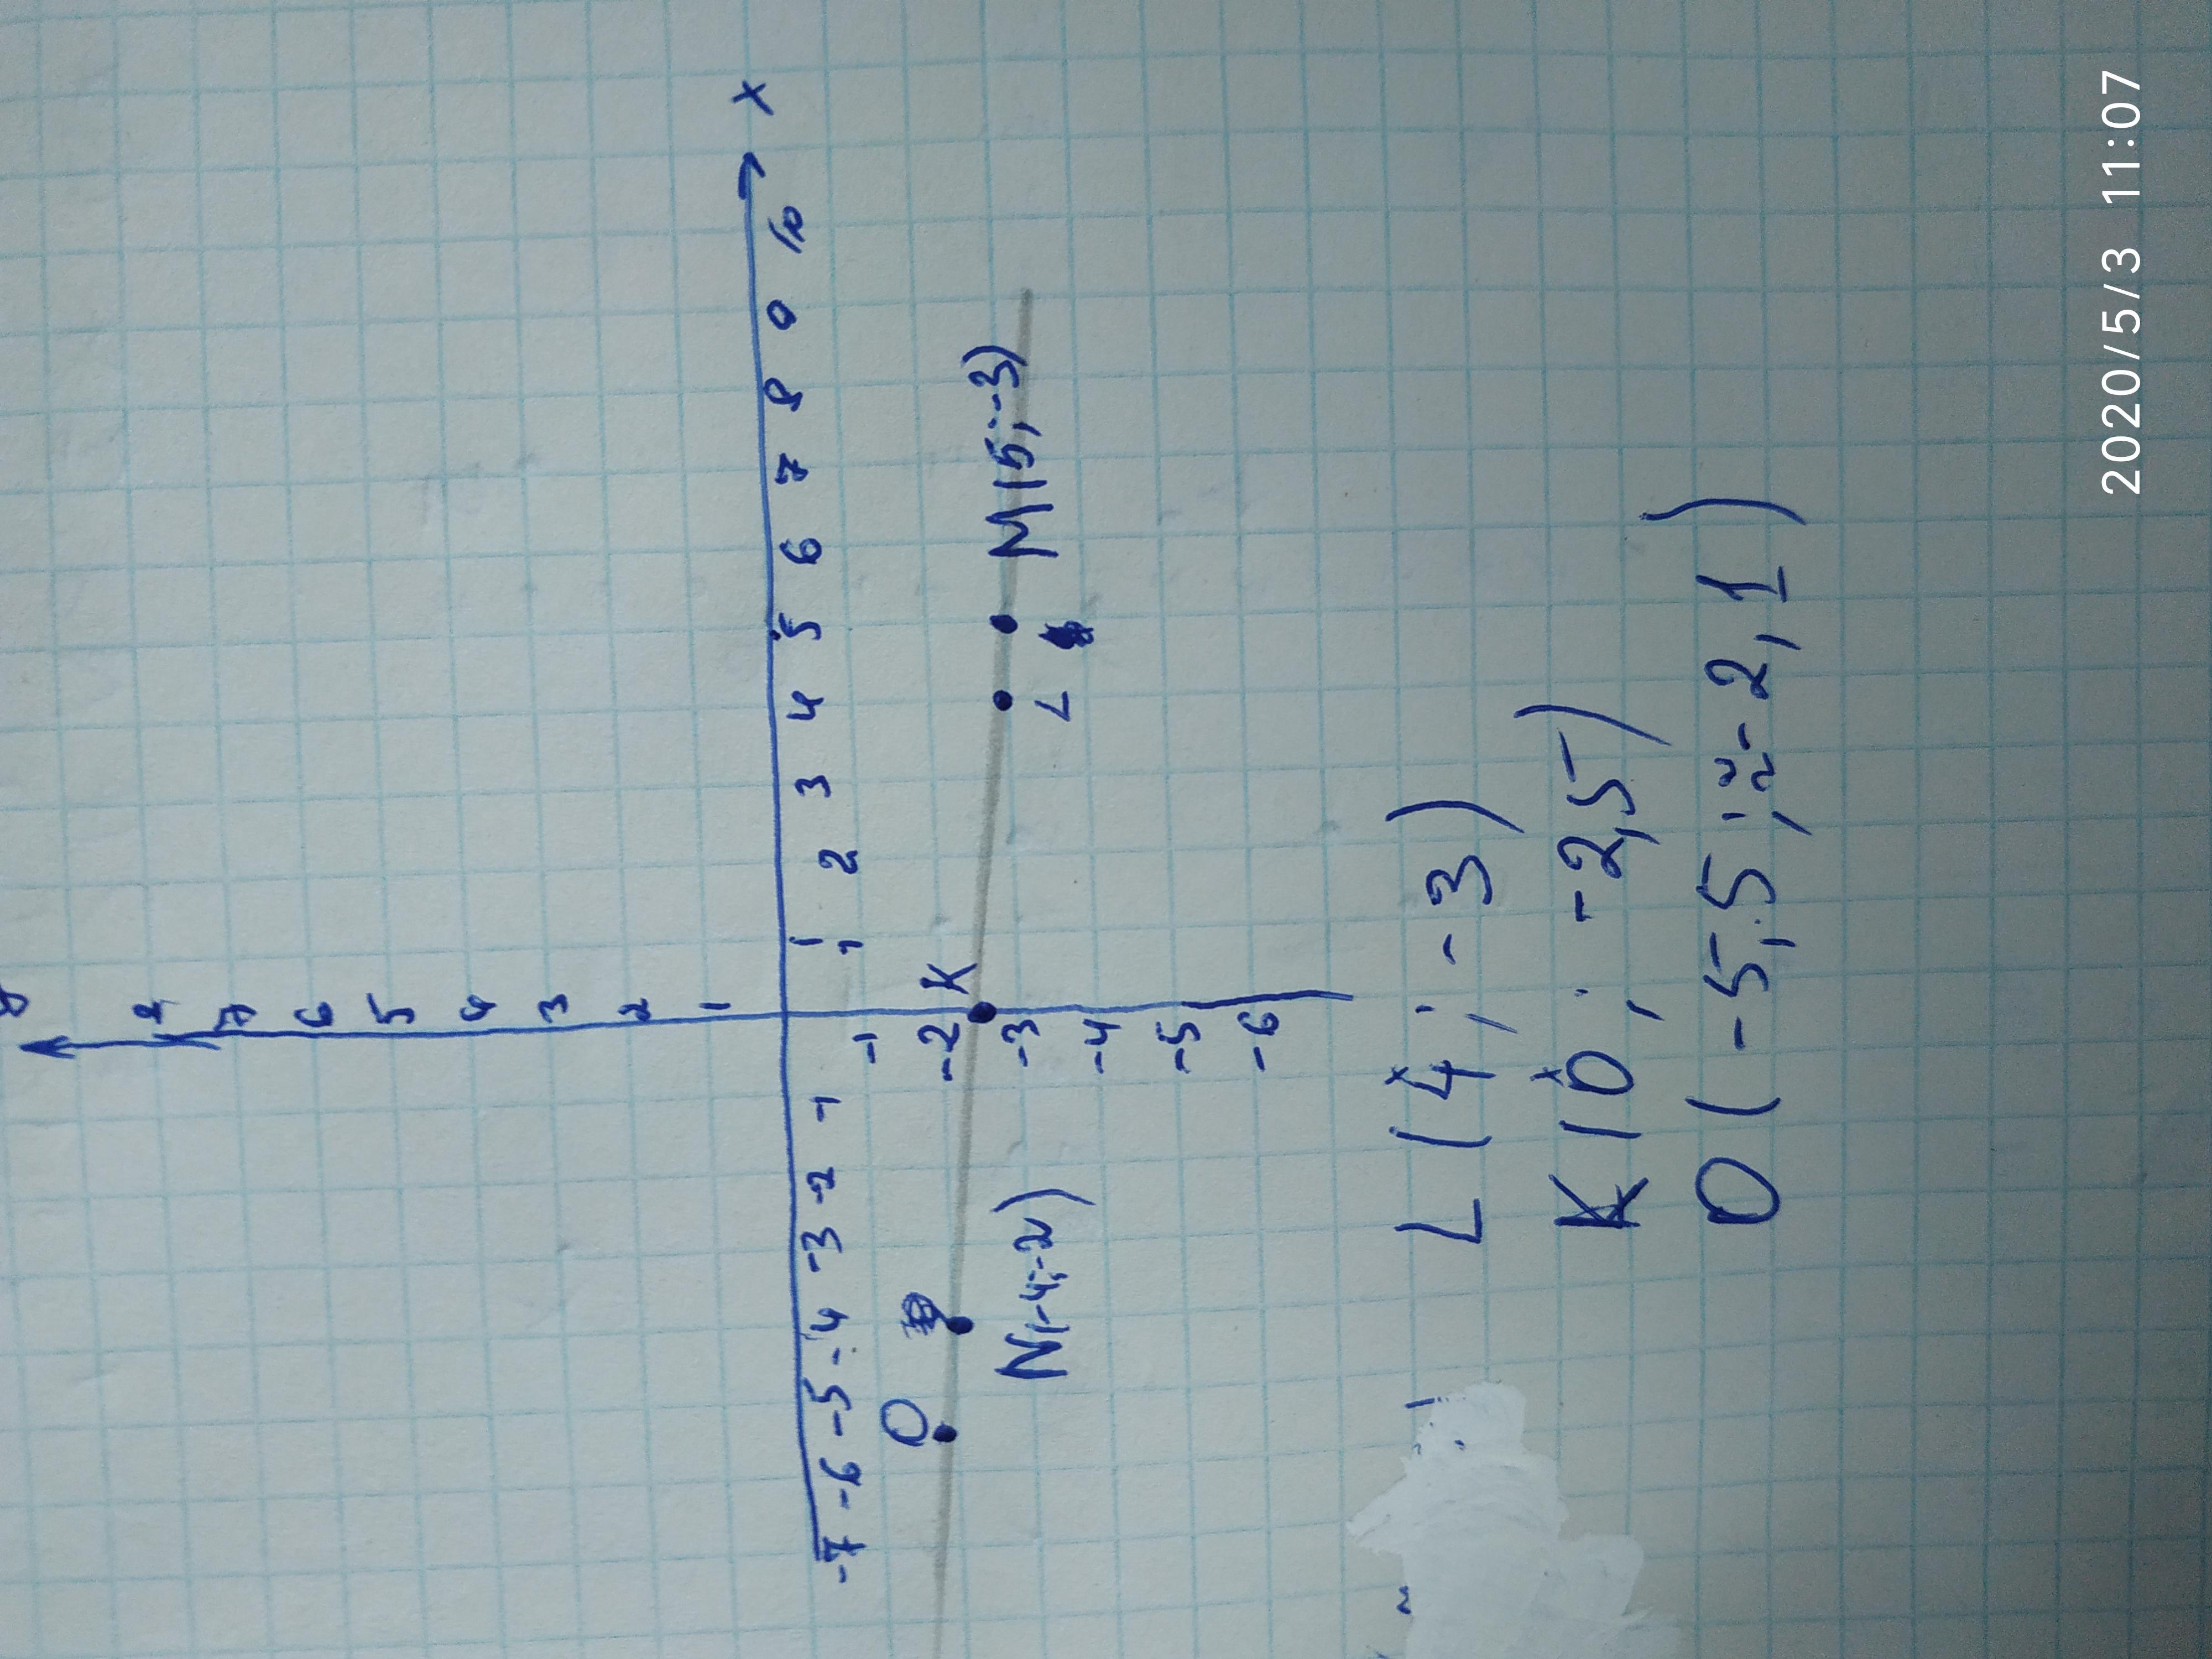 y
8
7
6
5
4
3
2
1
-7 -6 -5 -4 -3 -2 -1 1 2 3 4 5 6 7 8 9 10 x
-1
-2
-3
-4
-5
-6
O
K
N(-4;-2)
L
M(5;-3)
L (4 ; -3)
K (0 ; -2,5)
O (-5,5 ; -2,1)
2020/5/3 11:07